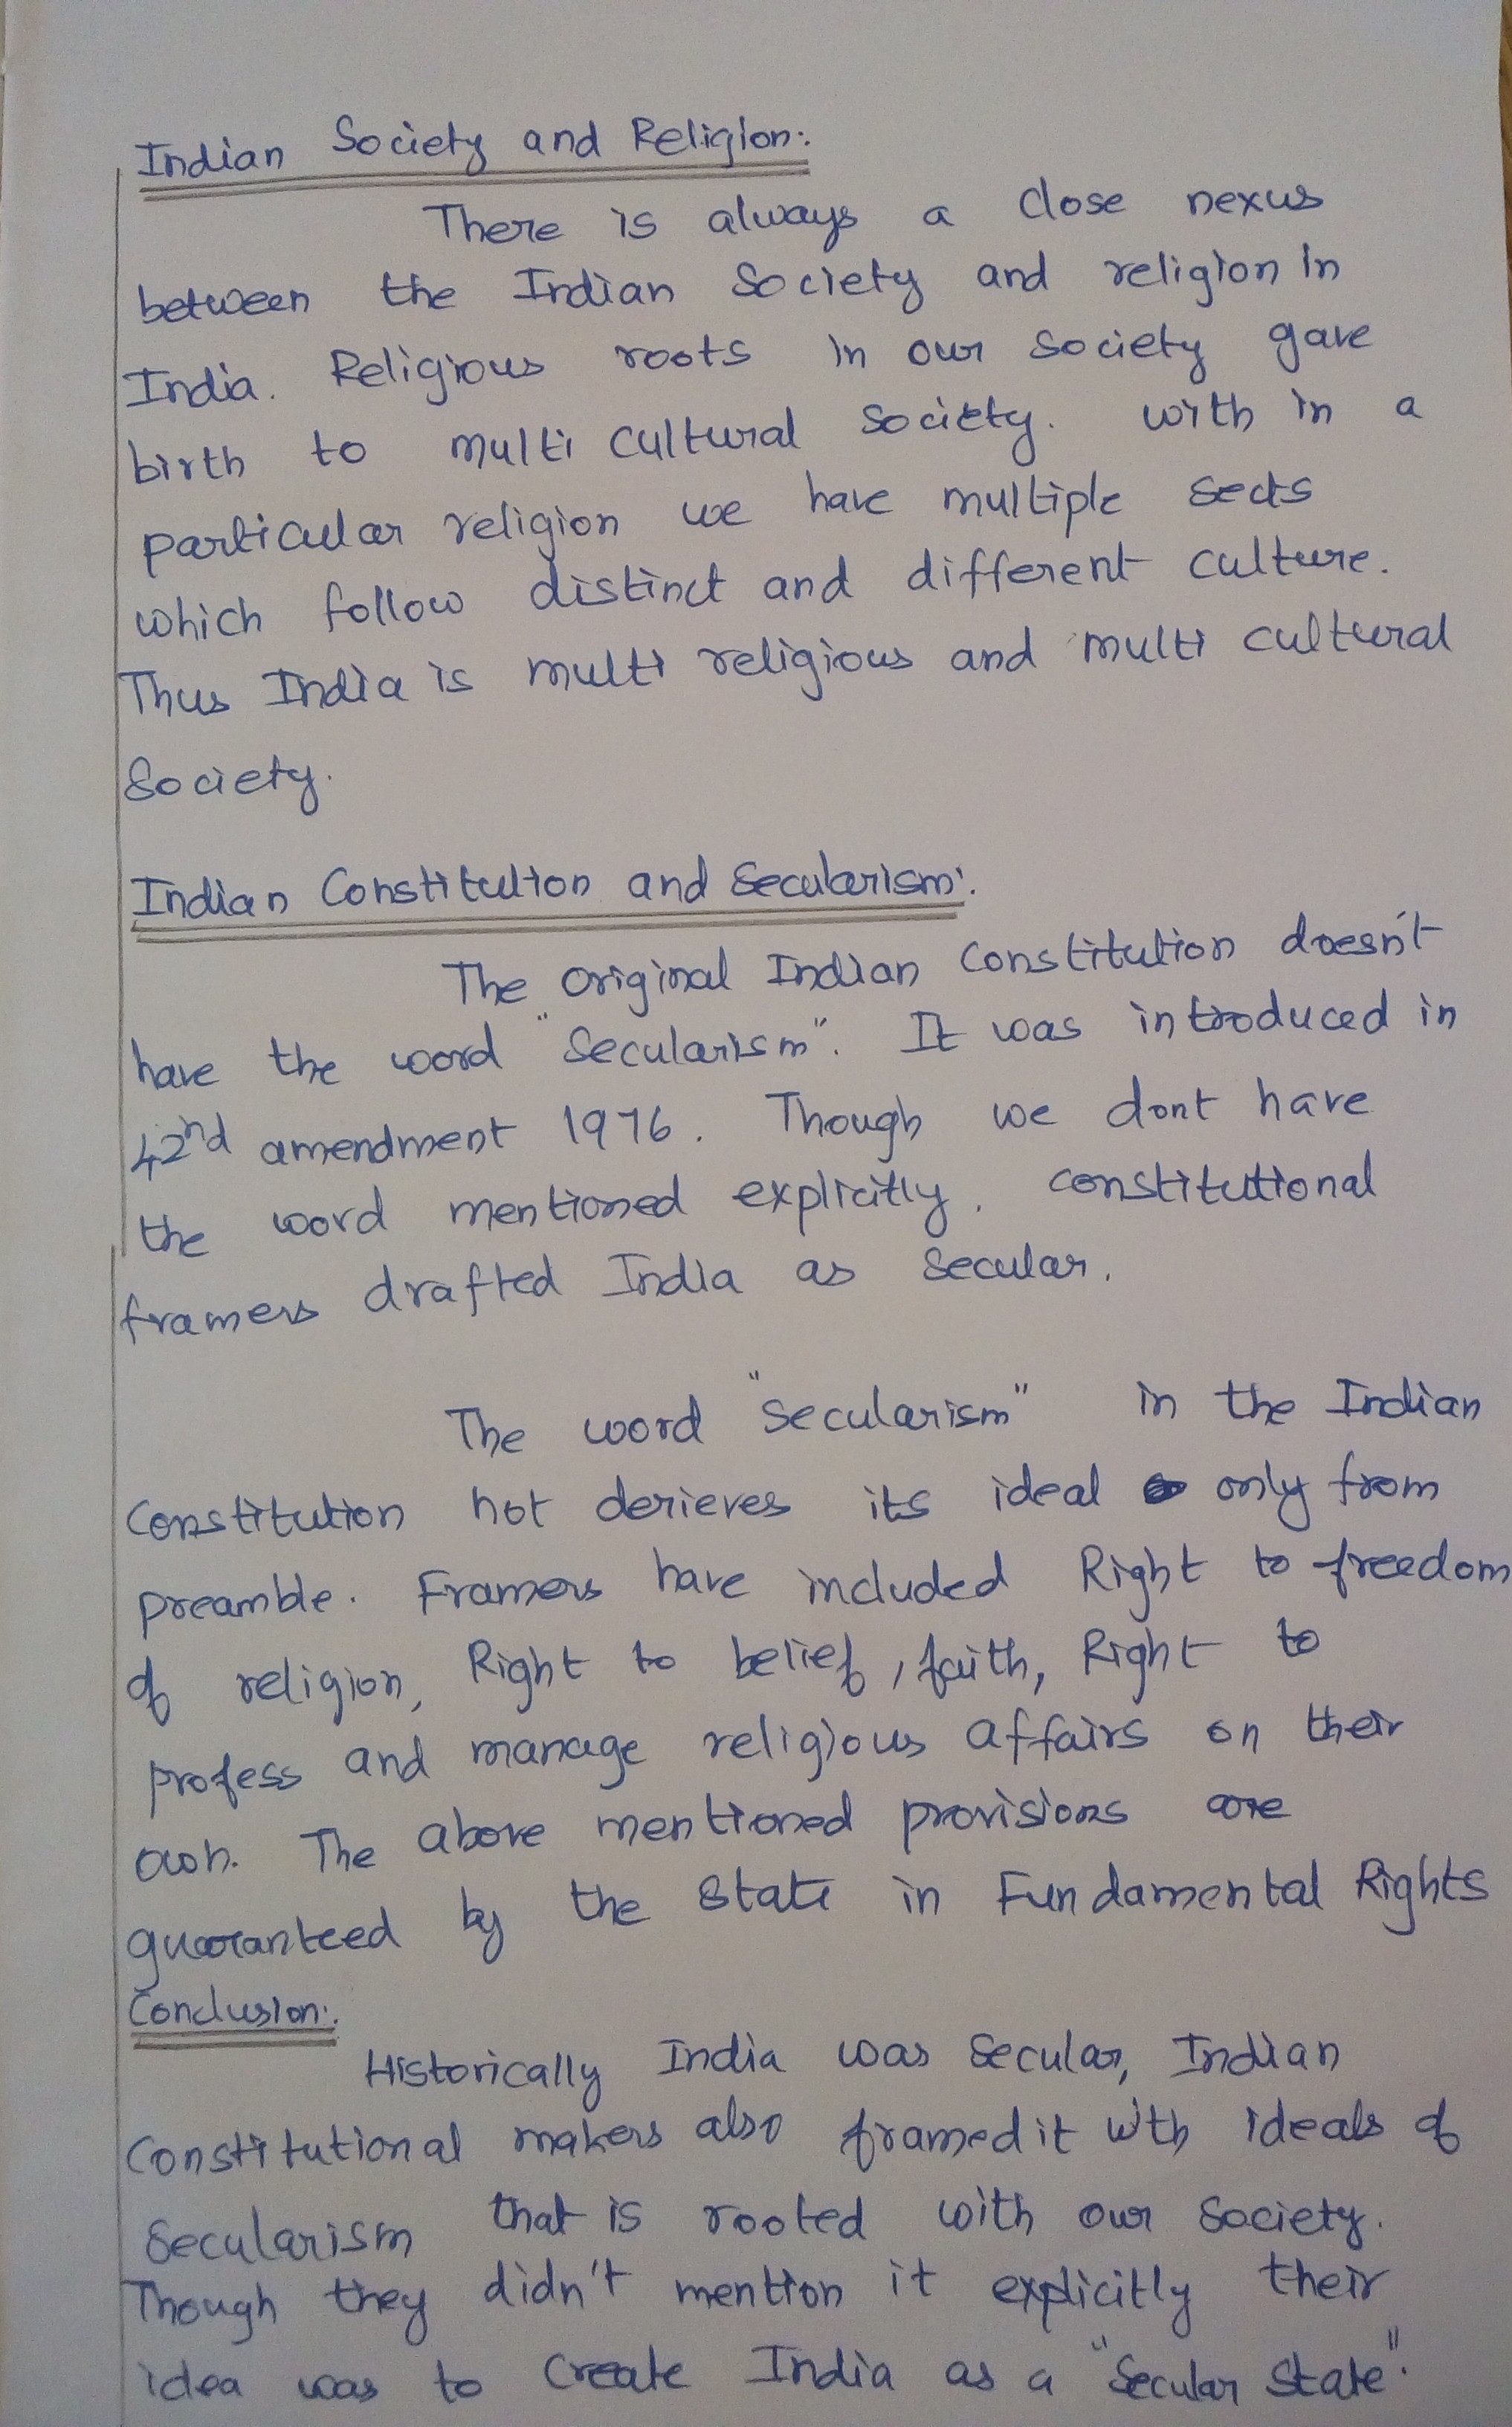 Indian Society and Religion:
There is always a close nexus
between the Indian Society and religion in
India. Religious roots in our society gave
birth to multi cultural society. with in a
particular religion we have multiple sects
which follow distinct and different culture.
Thus India is multi religious and multi cultural
Society.
Indian Constitution and Secularism:
The original Indian Constitution doesn't
have the word "Secularism". It was introduced in
42nd amendment 1976. Though we dont have
the word mentioned explicitly, constitutional
framers drafted India as Secular.
The word "Secularism" in the Indian
Constitution not derieves its ideal only from
preamble. Framers have included Right to freedom
of religion, Right to belief, faith, Right to
profess and manage religious affairs on their
own. The above mentioned provisions are
guaranteed by the State in Fundamental Rights
Conclusion:
Historically India was Secular, Indian
Constitutional makers also framed it with ideals of
Secularism that is rooted with our Society.
Though they didn't mention it explicitly their
idea was to Create India as a "Secular State".